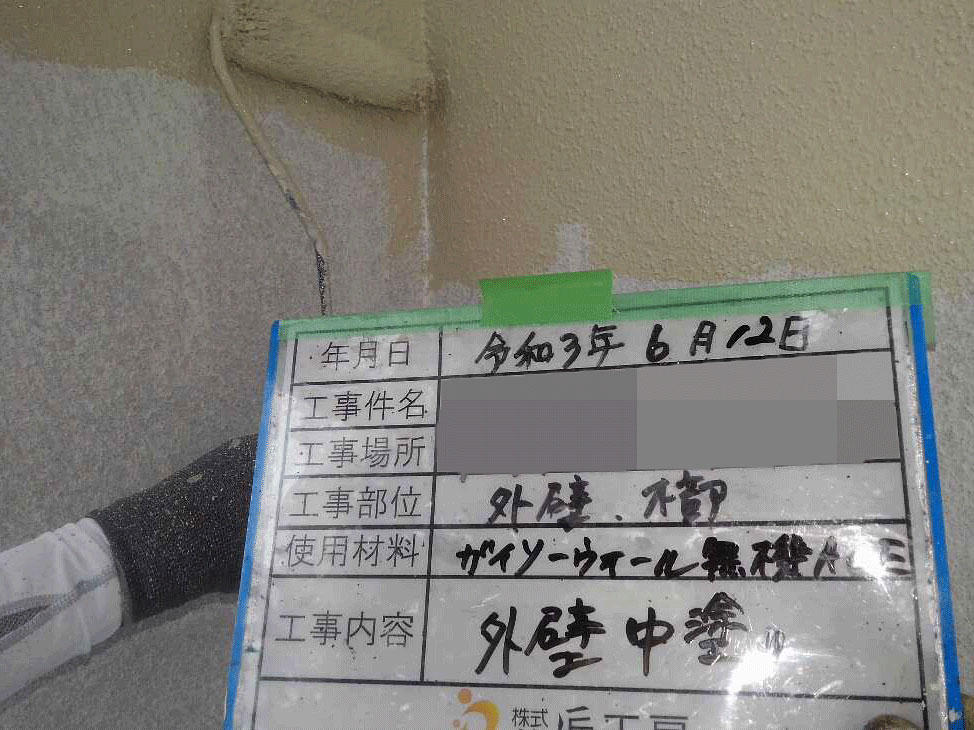 年月日 令和3年 6月12日
工事件名
工事場所
工事部位 外壁、木部
使用材料 ガイソーウォール無機
工事内容 外壁中塗
株式